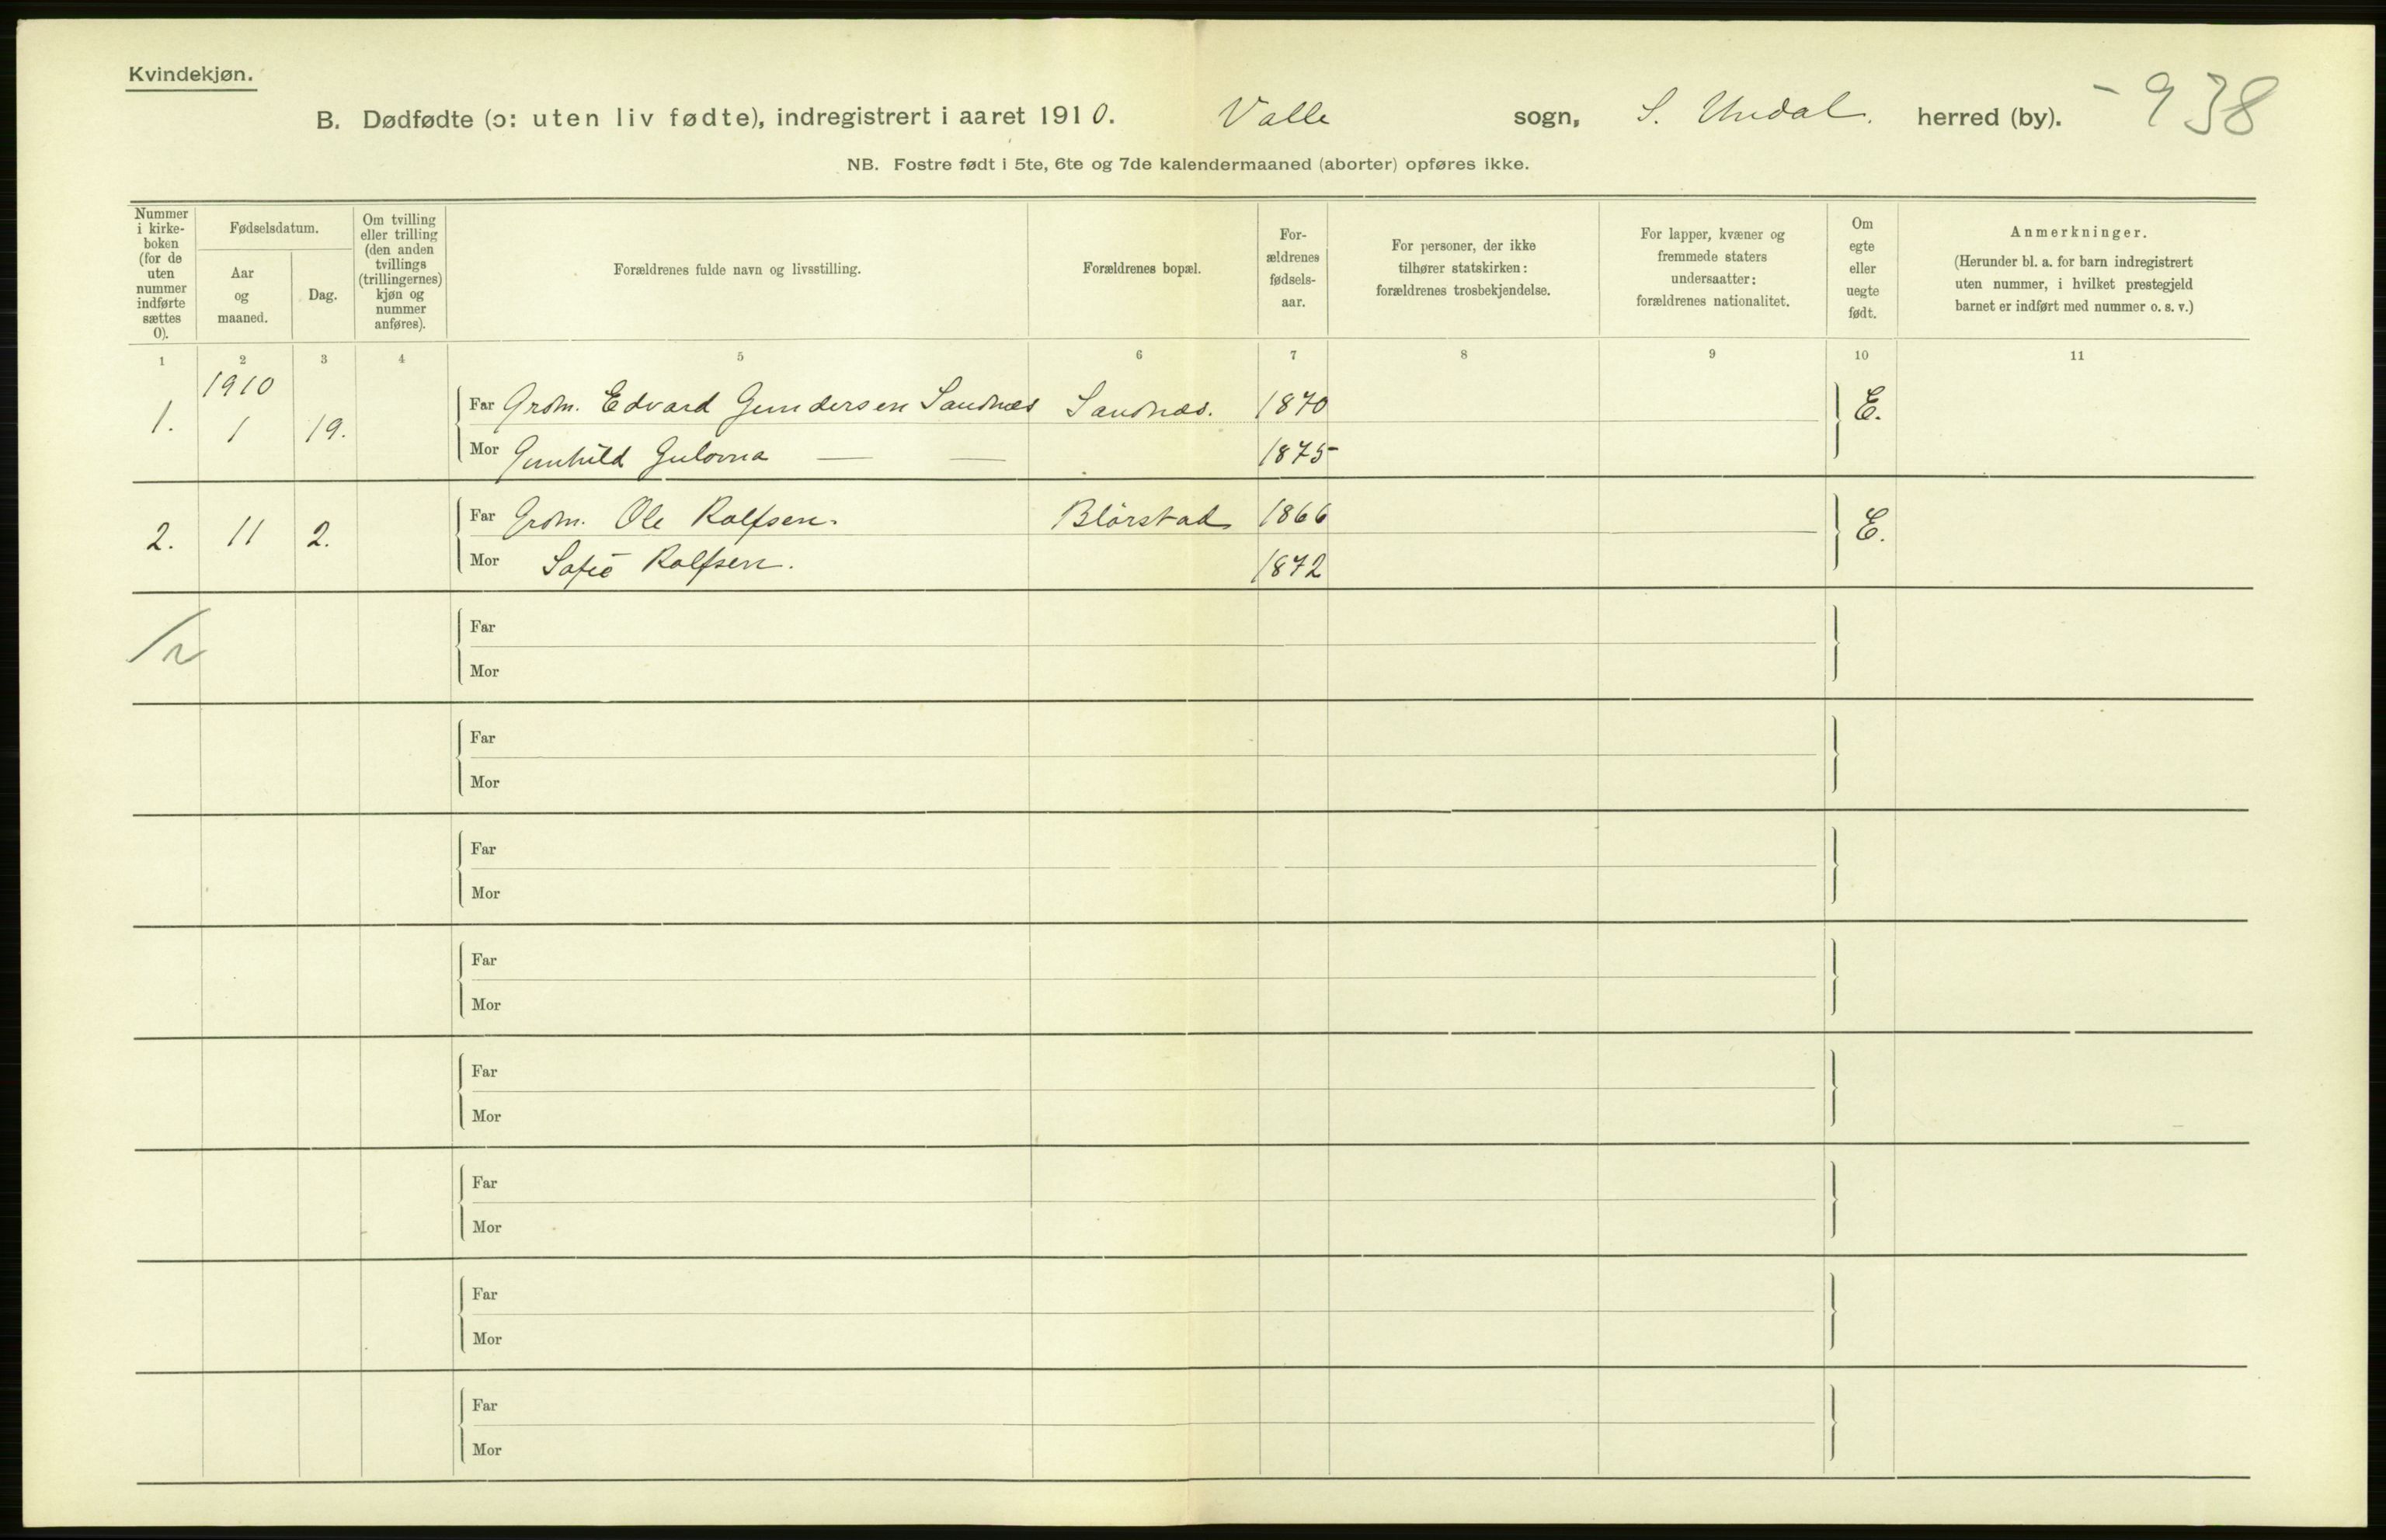 Kvindekjøn.
B. Dødfødte (ɔ: uten liv fødte), indregistrert i aaret 1910. Valle sogn, S. Undal. herred (by). - 938
NB. Fostre født i 5te, 6te og 7de kalendermaaned (aborter) opføres ikke.
Nummer
i kirke-
boken
(for de
uten
nummer
indførte
sættes
0).
Fødselsdatum.
Aar
og
maaned.
Dag.
Om tvilling
eller trilling
(den anden
tvillings
(trillingernes)
kjøn og
nummer
anføres).
Forældrenes fulde navn og livsstilling.
Forældrenes bopæl.
For-
ældrenes
fødsels-
aar.
For personer, der ikke
tilhører statskirken:
forældrenes trosbekjendelse.
For lapper, kvæner og
fremmede staters
undersaatter:
forældrenes nationalitet.
Om
egte
eller
uegte
født.
Anmerkninger.
(Herunder bl. a. for barn indregistrert
uten nummer, i hvilket prestegjeld
barnet er indført med nummer o. s. v.)
1 2 3 4 5 6 7 8 9 10 11
1910
1. 1 19. Far Grdm. Edvard Gundersen Sandnæs Sandnæs. 1870 E.
Mor Gunhild Gulovna — — 1875
2. 11 2. Far Grdm. Ole Rolfsen. Blørstad 1866 E.
Mor Sofie Rolfsen. 1872
/2
Far
Mor
Far
Mor
Far
Mor
Far
Mor
Far
Mor
Far
Mor
Far
Mor
Far
Mor